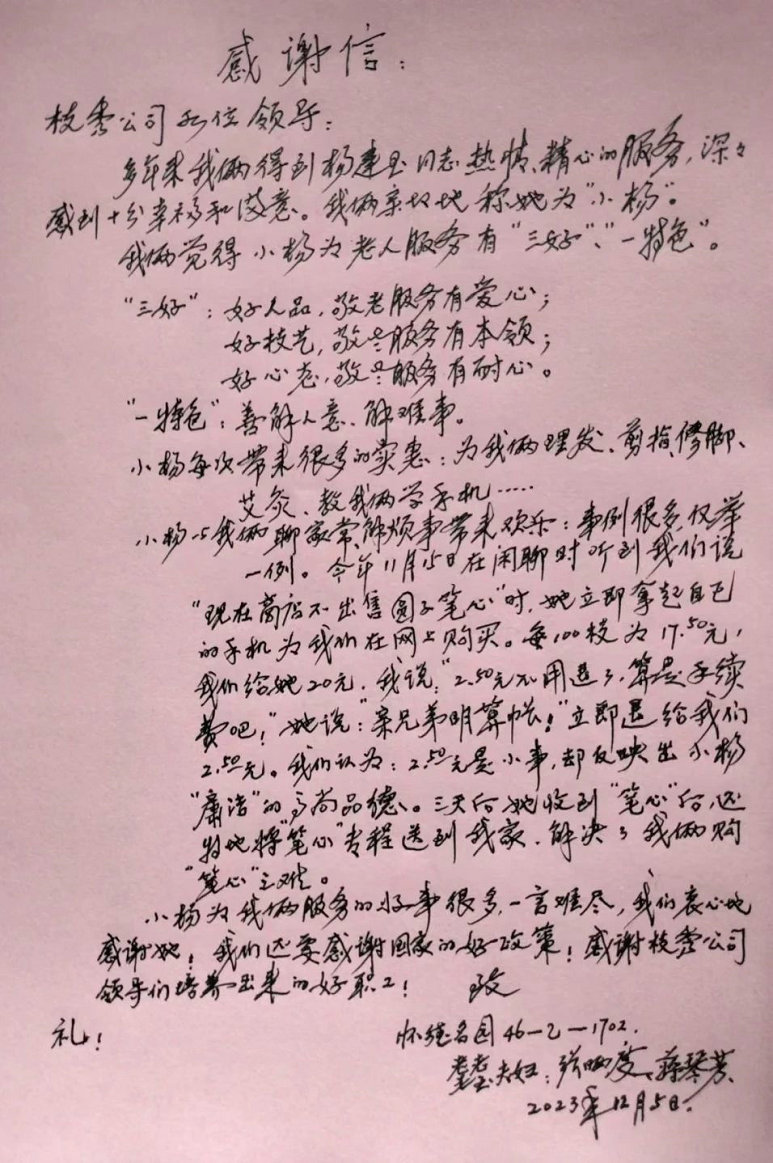 感谢信:
枝秀公司各位领导:
多年来我俩得到杨建玉同志热情、精心的服务,深々
感到十分幸福和满意。我俩亲切地称她为"小杨"。
我俩觉得小杨为老人服务有"三好"、"一特色"。
"三好":好人品,敬老服务有爱心;
好技艺,敬老服务有本领;
好心态,敬老服务有耐心。
"一特色":善解人意、解难事。
小杨每次带来很多的实惠:为我俩理发、剪指修脚、
艾灸、教我俩学手机……
小杨与我俩聊家常、解烦事带来欢乐:事例很多,仅举
一例。今年11月15日在闲聊时听到我们说
"现在商店不出售圆子笔心"时,她立即拿起自己
的手机为我们在网上购买。每100枝为17.50元,
我们给她20元,我说:"2.50元不用退了,算是手续
费吧!"她说:"亲兄弟明算帐!"立即退给我们
2.50元。我们认为:2.50元是小事,却反映出小杨
"廉洁"的高尚品德。三天后她收到"笔心"后,还
特地将"笔心"专程送到我家,解决了我俩购
"笔心"之难。
小杨为我俩服务的好事很多,一言难尽,我们衷心地
感谢她!我们还要感谢国家的好政策!感谢枝秀公司
领导们培养出来的好职工! 致
礼!
怀德名园46—乙—1702.
夫妇:张 度、蒋琴芳
2023年12月5日.